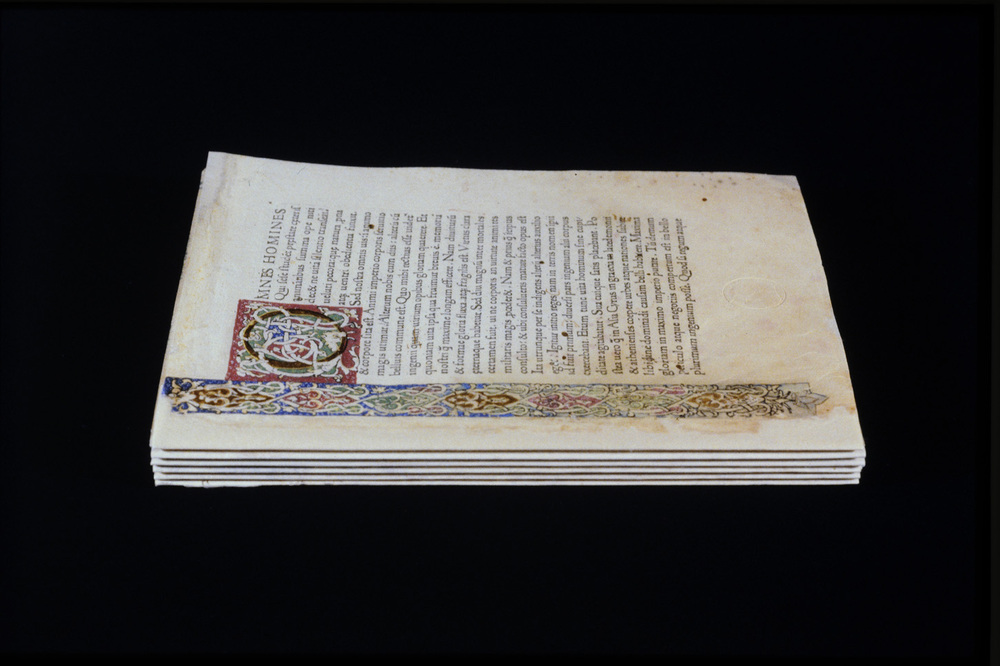 MNES HOMINES
Qui sese studēt præstare cæteris
animalibus summa ope niti
decet ne uitā silentio transeāt
ueluti pecora: quæ natura prona
atq; uentri obedientia finxit.
Sed nostra omnis uis ī animo
& corpore sita est. Animi imperio corporis seruitio
magis utimur. Alterum nobis cum diis: alterū cū
beluis commune est. Quo mihi rectius esse uidet
ingenii quam uirium opibus gloriam quærere. Et
quoniam uita ipsa qua fruimur breuis ē. memoriā
nostri q̄ maxime longam efficere. Nam diuitiarū
& formæ gloria fluxa atq; fragilis est. Virtus clara
æternaque habetur. Sed diu magnū inter mortales
certamen fuit. ui ne corporis an uirtute animi res
militaris magis procederet. Nam & prius q̄ incipias
consulto: & ubi consulueris mature facto opus est
Ita utrunque per se indigens alterū alterius auxilio
eget. Igitur initio reges: nam in terris nomen īperii
id fuit primū: diuersi pars ingenium alii corpus
exercebant. Etiam tunc uita hominum sine cupi-
ditate agitabatur. Sua cuique satis placebant. Po
stea uero q̄ in Asia Cyrus in græcia lacedæmonii
& athenienses coepere urbes atque nationes subigere
libidinem dominandi causam belli habere. Maximā
gloriam in maximo imperio putare. Tū demum
periculo atque negociis compertum est in bello
plurimum ingenium posse. Quod si regum atque